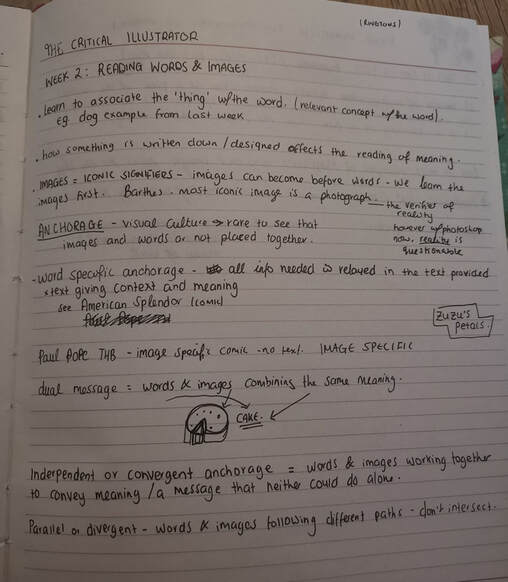 THE CRITICAL ILLUSTRATOR
WEEK 2: READING WORDS & IMAGES
• learn to associate the 'thing' w/the word. (relevant concept w/the word).
eg dog example from last week
• how something is written down/designed affects the reading of meaning.
• IMAGES = ICONIC SIGNIFIERS - images can become before words - we learn the
images first. Barthes. most iconic image is a photograph — the verifier of
reality
however w/photoshop
now, reality is
questionable
ANCHORAGE - visual culture → rare to see that
images and words or not placed together.
- word specific anchorage - all info needed is relayed in the text provided
x text giving context and meaning
see American Splendor (comic)
ZUZU'S
PETALS.
Paul POPE THB - image specific comic - no text. IMAGE SPECIFIC
dual message = words & images combining the same meaning.
CAKE.
Interpendent or convergent anchorage = words & images working together
to convey meaning/a message that neither could do alone.
Parallel or divergent - words & images following different paths - don't intersect.